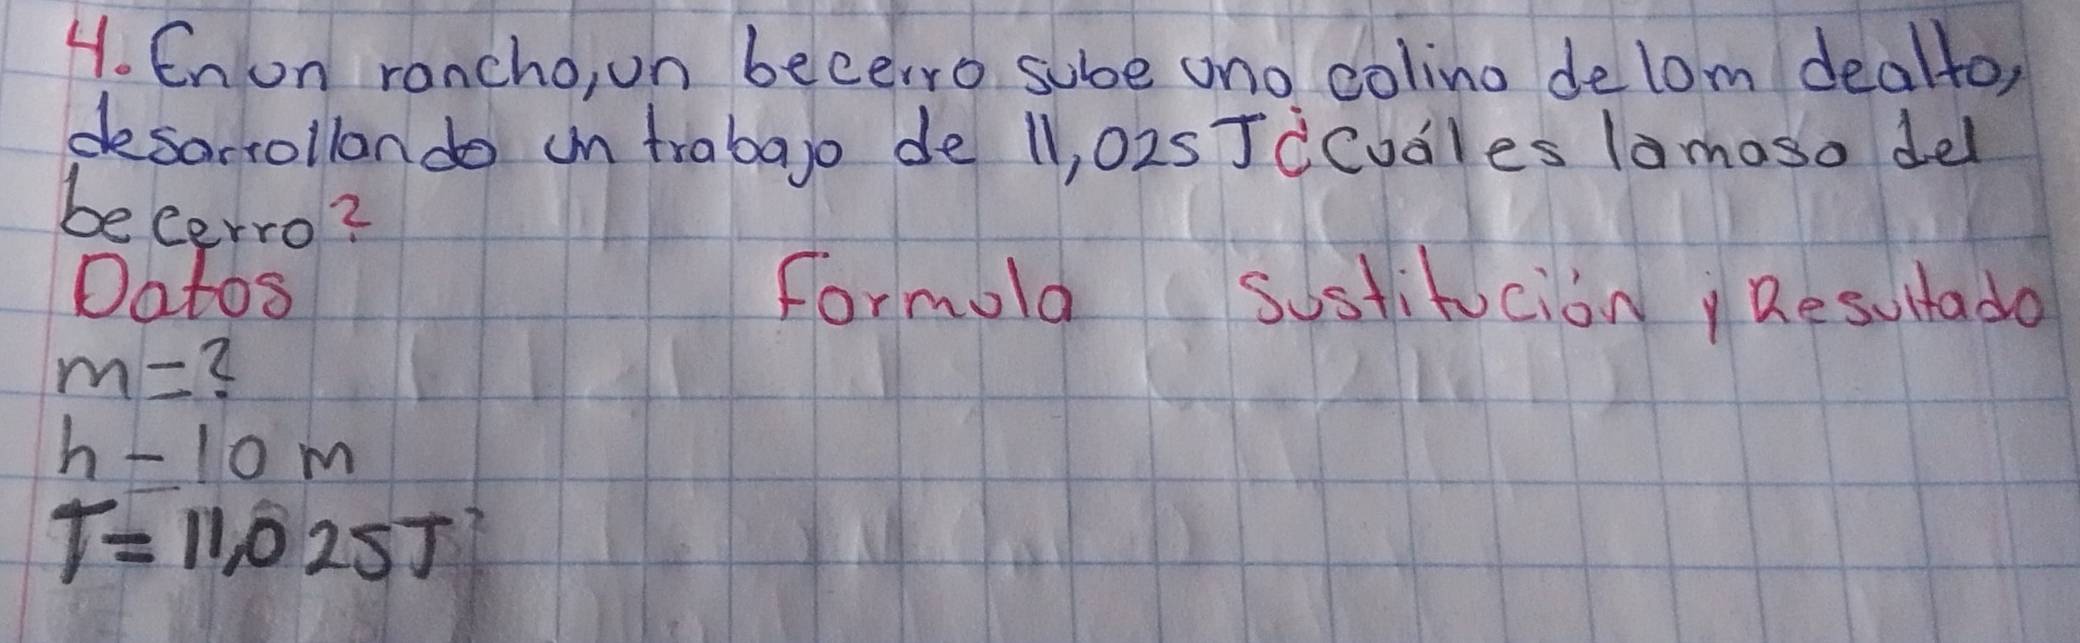 4. En un rancho, un becerro sube una colina de 10m de alto,
desarrollando un trabajo de 11,025 J ¿Cuál es la masa del
becerro?
Datos Formula Sustitución y Resultado
m=?
h=10 m
T=11,025J